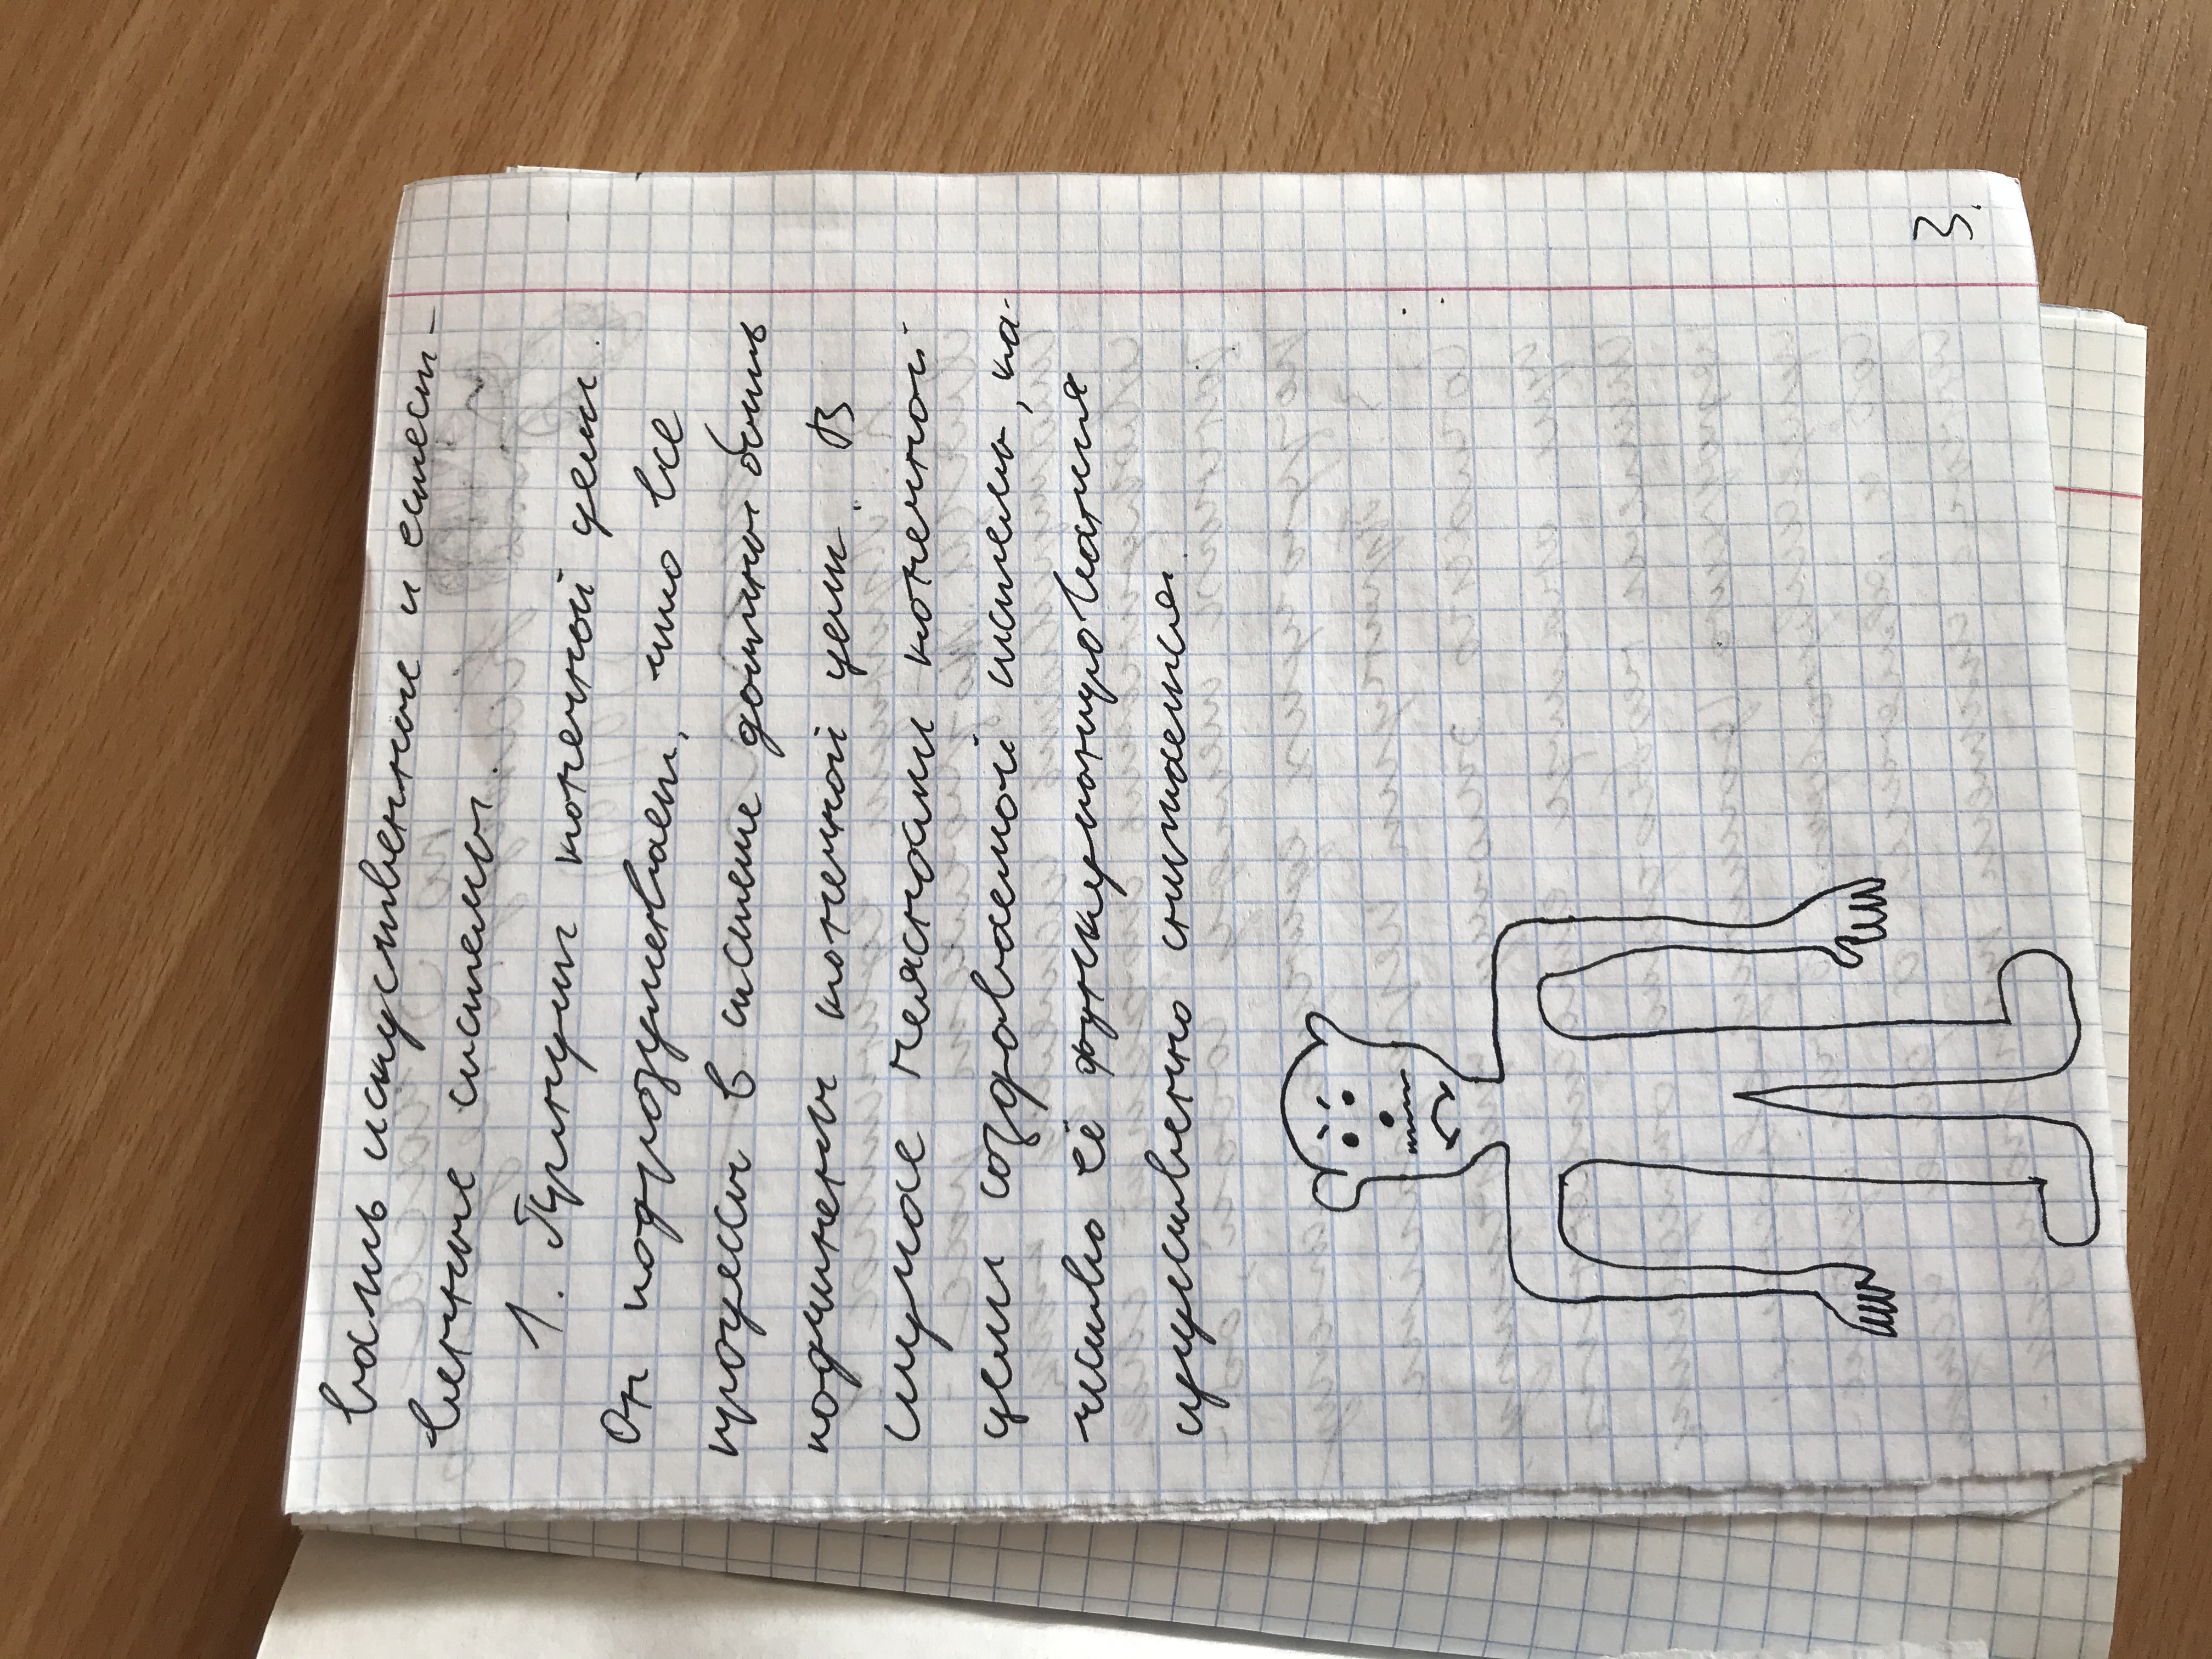 вать искуственные и естест-
венные системы.
1. Принцип конечной цели.
Он подрозумевает, что все
процессы в системе должны быть
подчинены конечной цели. В
случае неясности конечной
цели создаваемой системы, ка-
чество её функционирования
существенно снижается.
3.